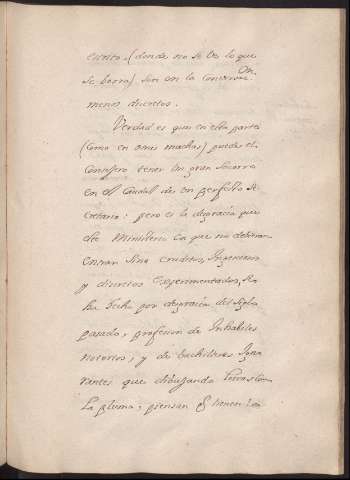 escrito (donde no se ve lo que
se borra) son en la conversa.on
menos discretos.
Verdad es que en esta parte
(como en otras muchas) puede el
Consejero tener un gran socorro
en el caudal de un perfecto Se
cretario: pero es la desgracia que
este Ministerio en que no debieran
entrar sino eruditos, Ingeniosos
y discretos experimentados, se
ha hecho por desgracia del siglo
pasado, profesion de Inhabiles
notorios, y de bachilleres Igno
rantes que dibujando letras con
la pluma, piensan q tienen